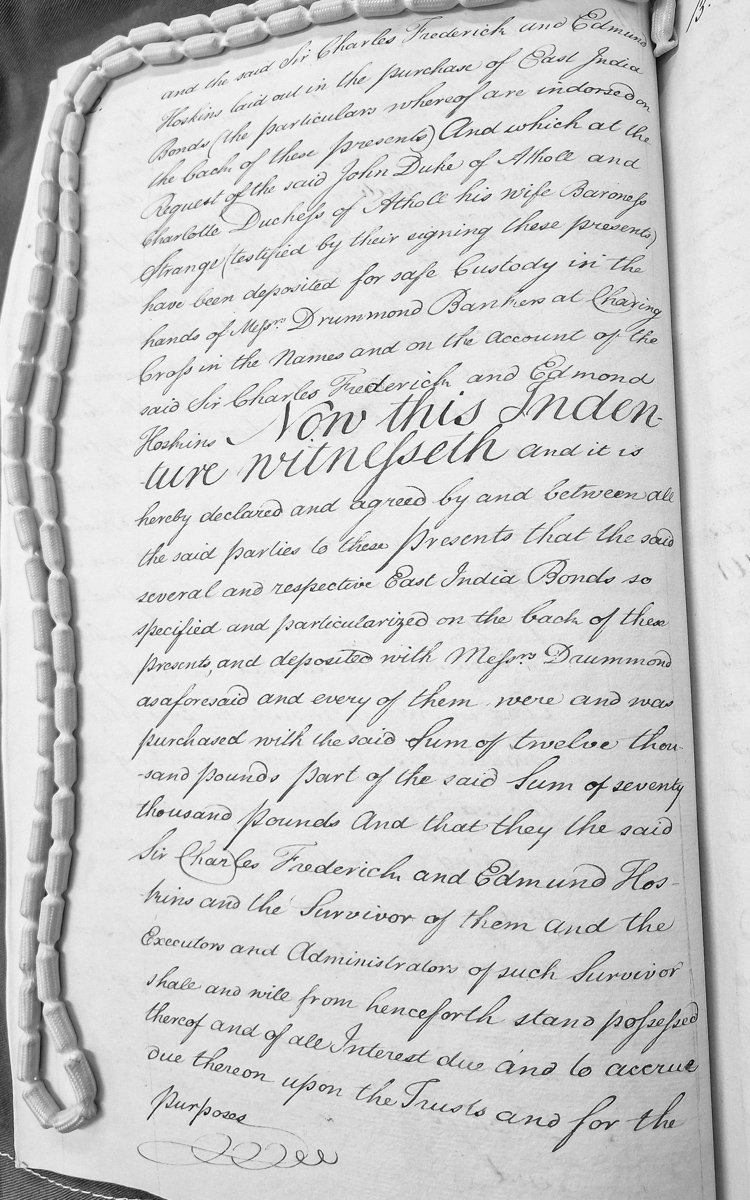 and the said Sir Charles Frederick and Edmund
Hoskins laid out in the purchase of East India
Bonds (the particulars whereof are indorsed on
the back of these presents) And which at the
Request of the said John Duke of Atholl and
Charlotte Duchess of Atholl his wife Baroness
Strange (testified by their signing these presents)
have been deposited for safe Custody in the
hands of Messrs. Drummond Bankers at Charing
Cross in the Names and on the Account of the
said Sir Charles Frederick and Edmond
Hoskins Now this Inden-
ture witnesseth and it is
hereby declared and agreed by and between all
the said parties to these presents that the said
several and respective East India Bonds so
specified and particularized on the back of these
presents, and deposited with Messrs. Drummond
as aforesaid and every of them were and was
purchased with the said Sum of twelve thou-
-sand pounds part of the said Sum of seventy
thousand pounds And that they the said
Sir Charles Frederick and Edmund Hos-
-kins and the Survivor of them and the
Executors and Administrators of such Survivor
shall and will from henceforth stand possessed
thereof and of all Interest due and to accrue
due thereon upon the Trusts and for the
purposes